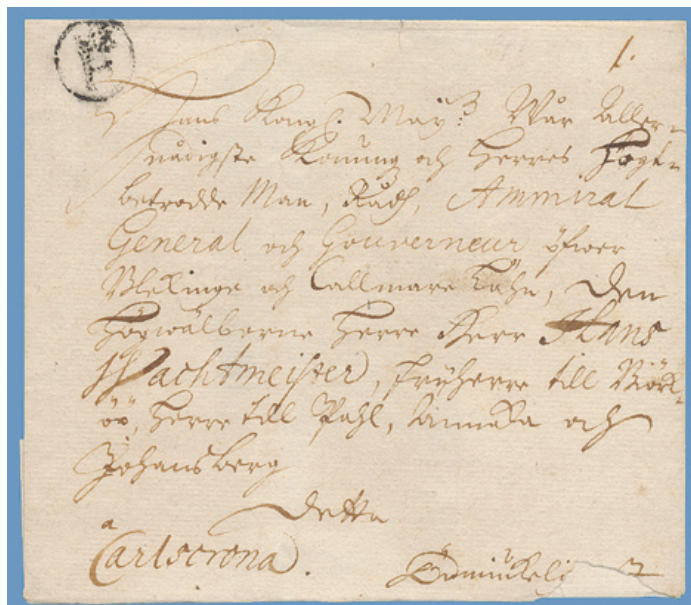 1.
Hans Kongl. May:tz Wår Aller-
nådigste Konung och Herres Högt-
betrodde Man, Rådh, Ammiral
General och Gouverneur öfwer
Blekinge och Callmare Lähn, Den
Högwälborne Herre Herr Hans
Wachtmeister, Fryherre till Biörk-
öö, Herre till Pahl, och
Johansberg
Detta
a
Carlscrona.
Ödmiukelig